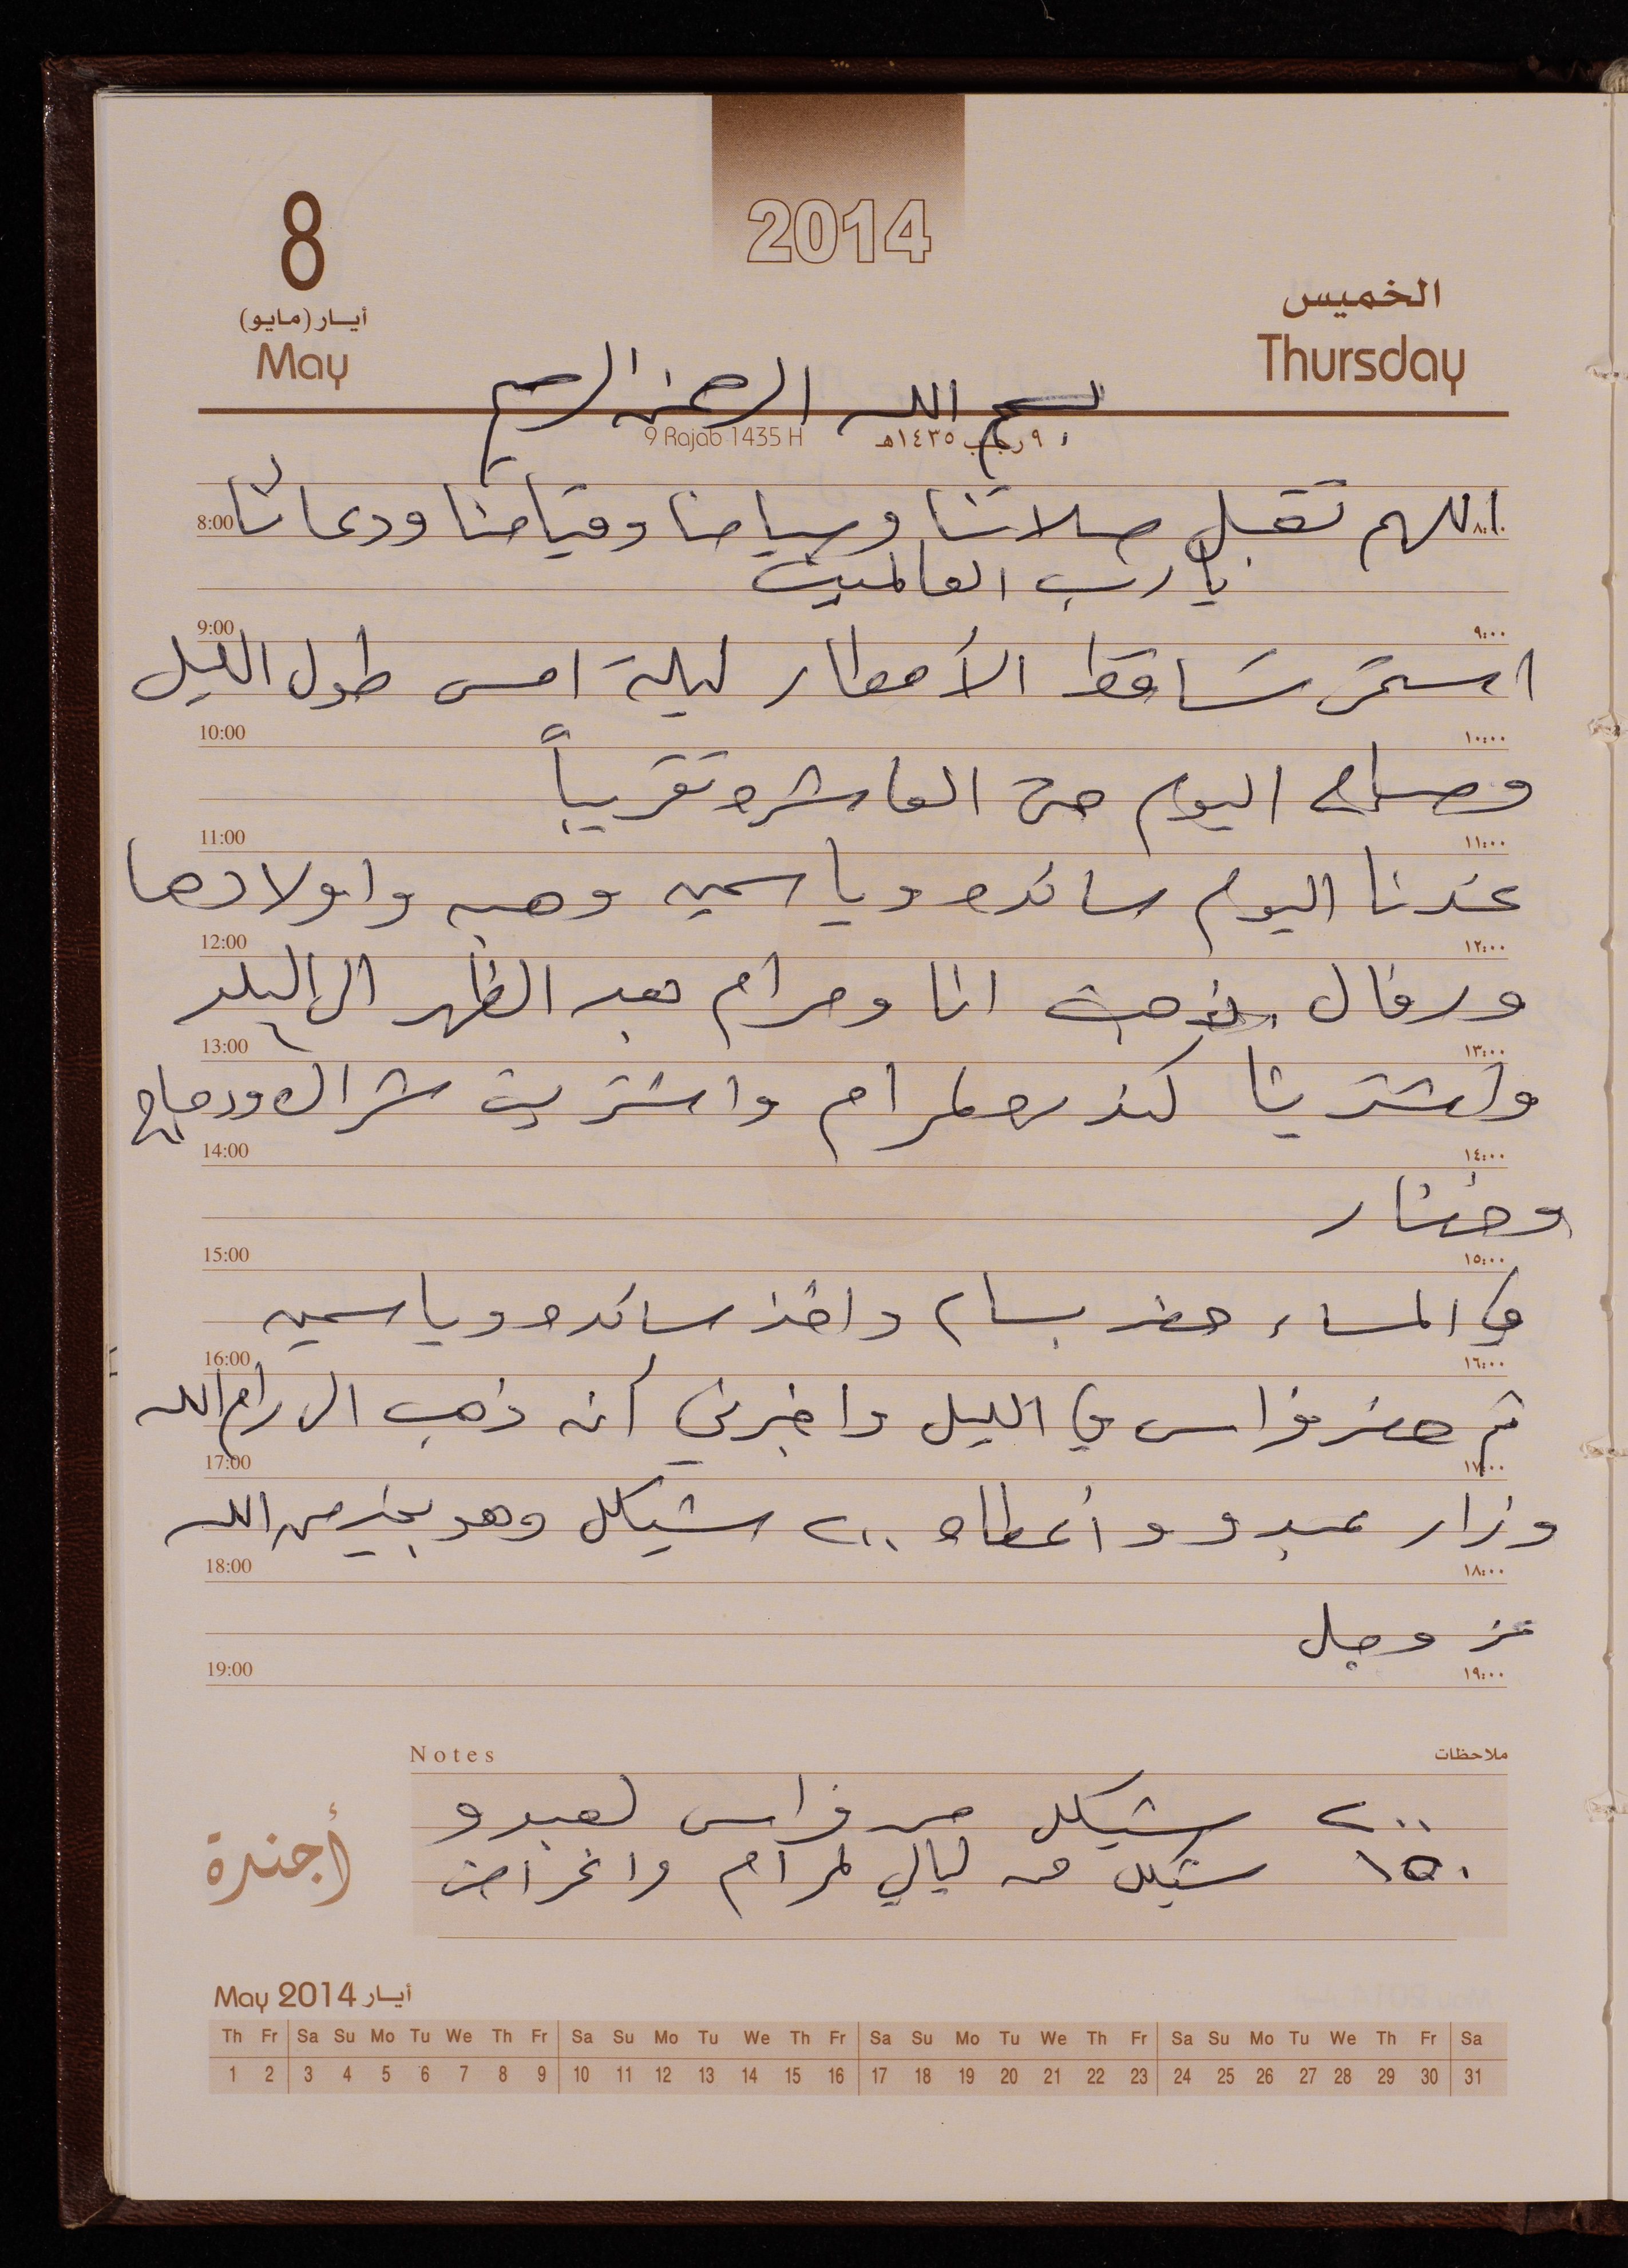 2014
8
أيـار (مايو)
May
الخميس
Thursday
بسم الله الرحمن الرحيم
9 Rajab 1435 H
٩ رجب ١٤٣٥هـ
اللهم تقبل صلاتنا وصيامنا وقيامنا ودعائنا
8:00
٨:٠٠
يا رب العالمين
9:00
٩:٠٠
استمر تساقط الأمطار ليلة امس طول الليل
10:00
١٠:٠٠
وصباح اليوم حتى العاشرة تقريباً
11:00
١١:٠٠
عندنا اليوم سائده وياسمين وهبه واولادها
12:00
١٢:٠٠
ورفال ذهبت انا ومرام بعد الظهر الى البلد
13:00
١٣:٠٠
واشترينا كندره لمرام واشتريت شراك ودجاج
14:00
١٤:٠٠
وخضار
15:00
١٥:٠٠
في المساء حضر بسام واخذ سائده وياسمين
16:00
١٦:٠٠
ثم حضر فراس في الليل واخبرني أنه ذهب الى رام الله
17:00
١٧:٠٠
وزار عبدو وأعطاه ٢٠٠ شيكل وهو بخير من الله
18:00
١٨:٠٠
عز وجل
19:00
١٩:٠٠
Notes
ملاحظات
٢٠٠ شيكل من فراس لعبدو
١٥٠ شيكل من ليالي لمرام واغراض
أجندة
May 2014 أيـار
Th Fr Sa Su Mo Tu We Th Fr Sa Su Mo Tu We Th Fr Sa Su Mo Tu We Th Fr Sa Su Mo Tu We Th Fr Sa
1 2 3 4 5 6 7 8 9 10 11 12 13 14 15 16 17 18 19 20 21 22 23 24 25 26 27 28 29 30 31